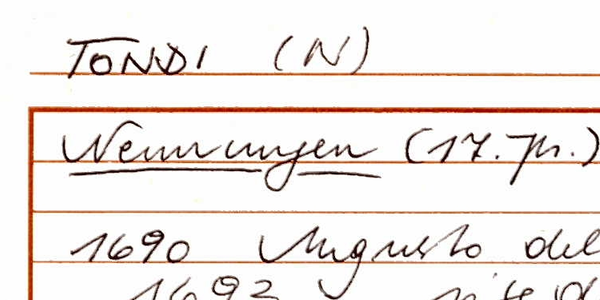 TONDI (N)
Nennungen (17. Jh.)
1690 Augusto del
1693